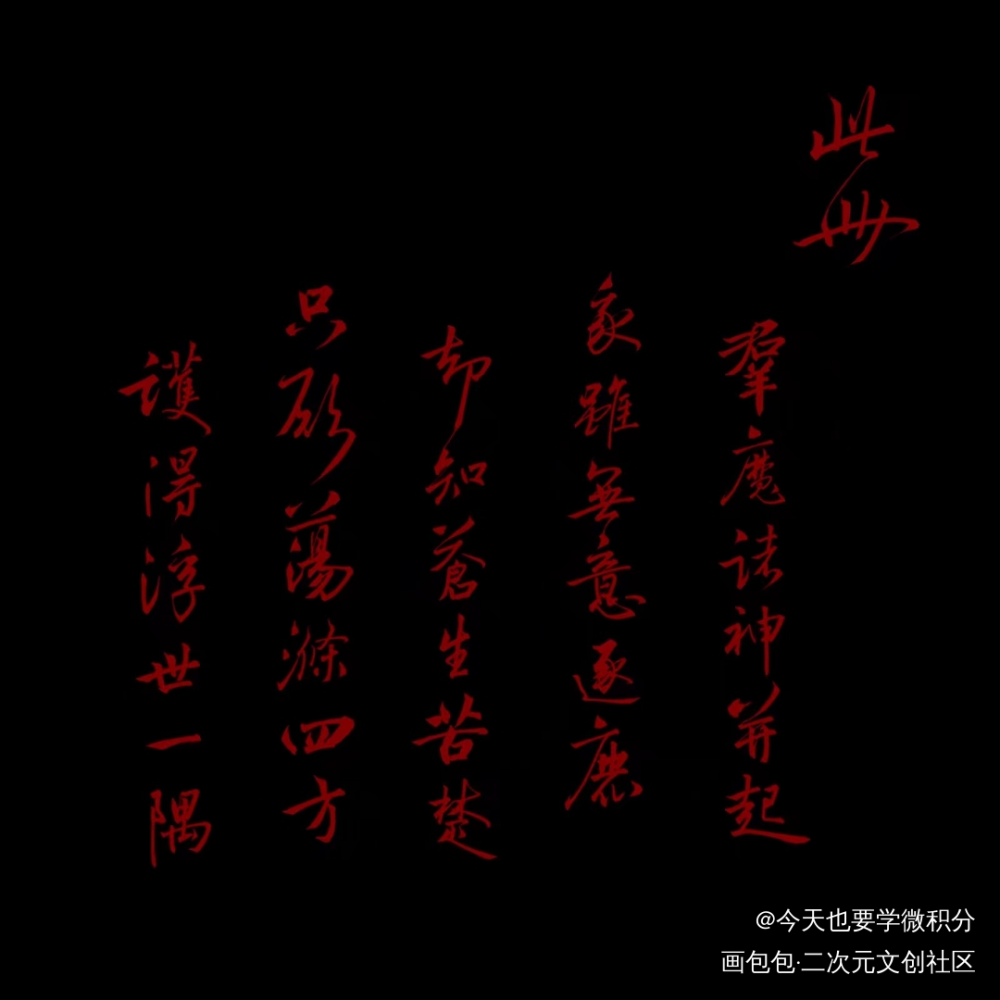 此世
羣魔誅神並起
雖無意逐鹿
却知蒼生苦楚
只願蕩滌四方
護得浮世一隅
@今天也要学微积分
画包包·二次元文创社区